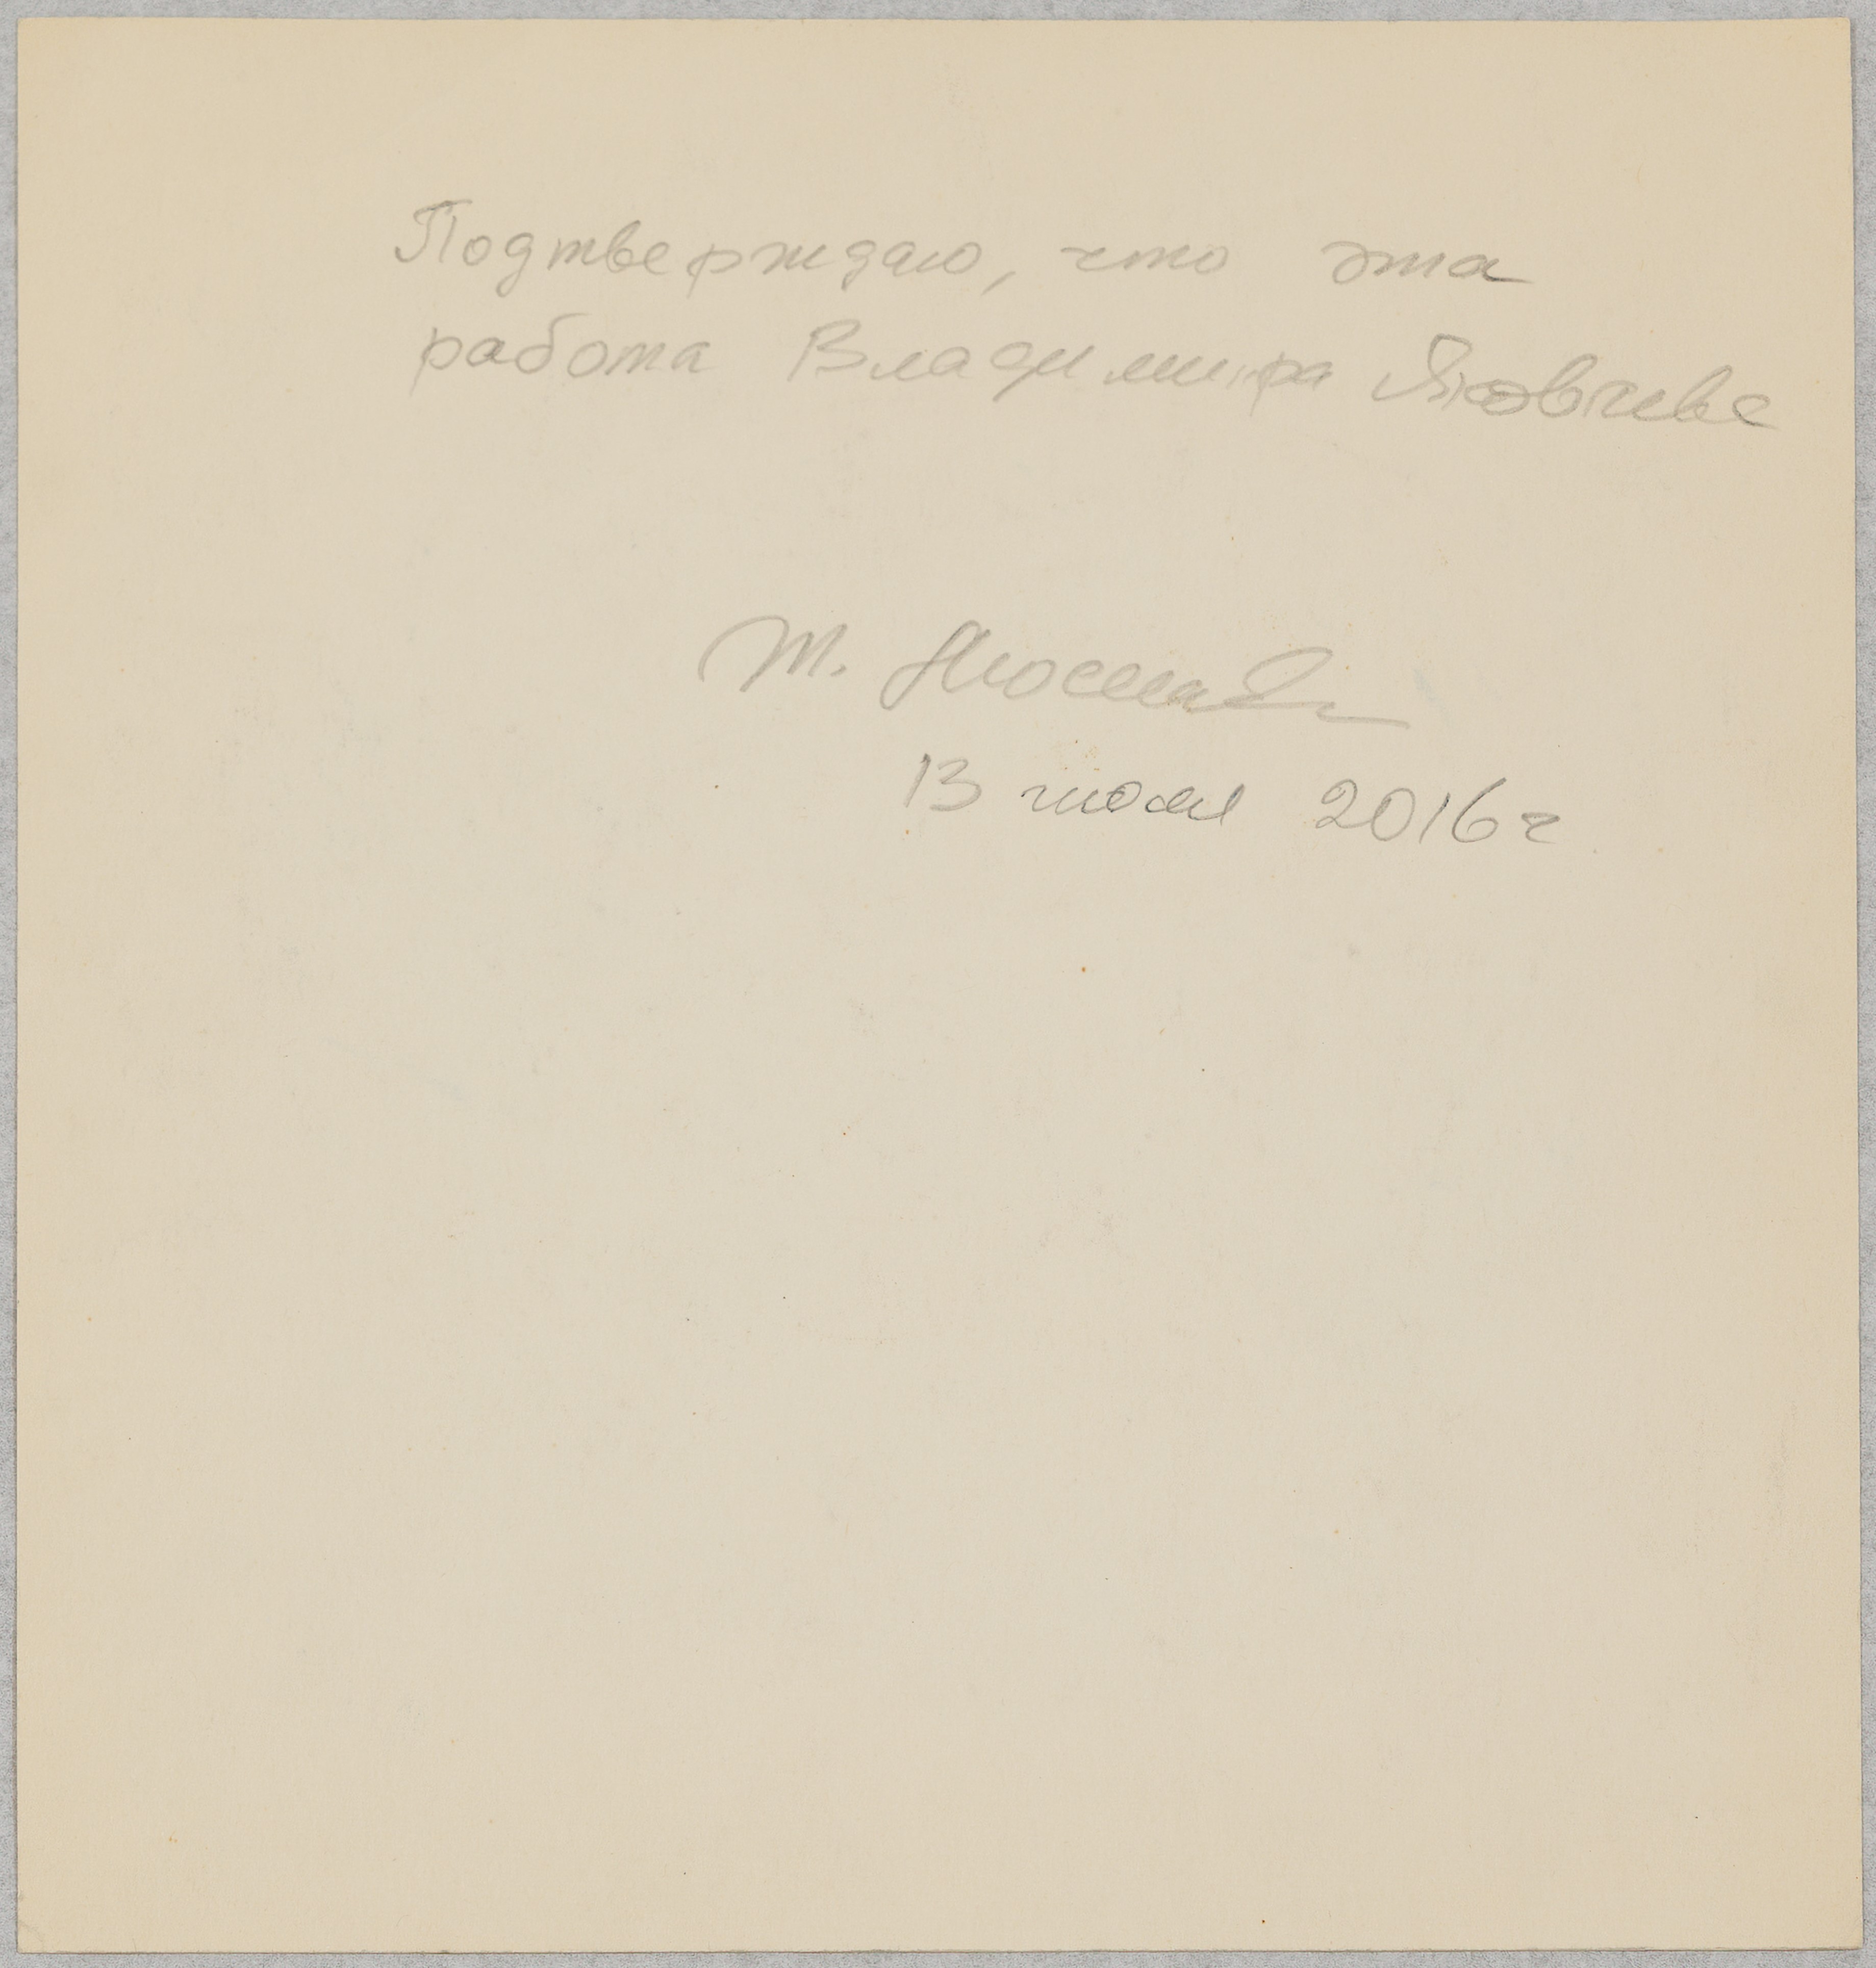 Подтверждаю, что эта
работа Владимира Яковлева
Т.
13 июля 2016 г